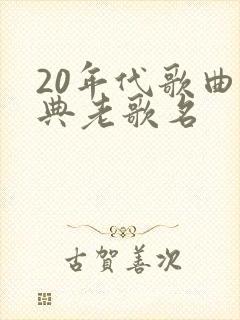 20年代歌曲
典老歌名
古賀善次